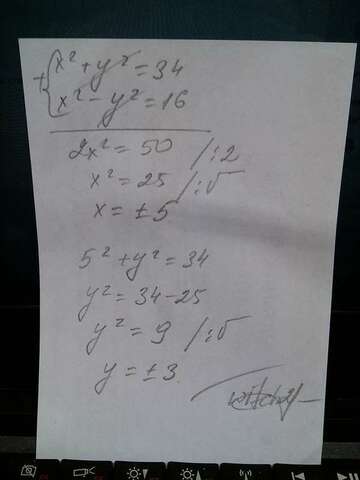 +{x² + y² = 34
x² - y² = 16
2x² = 50 /:2
x² = 25 /:√
x = ± 5
5² + y² = 34
y² = 34 - 25
y² = 9 /:√
y = ± 3